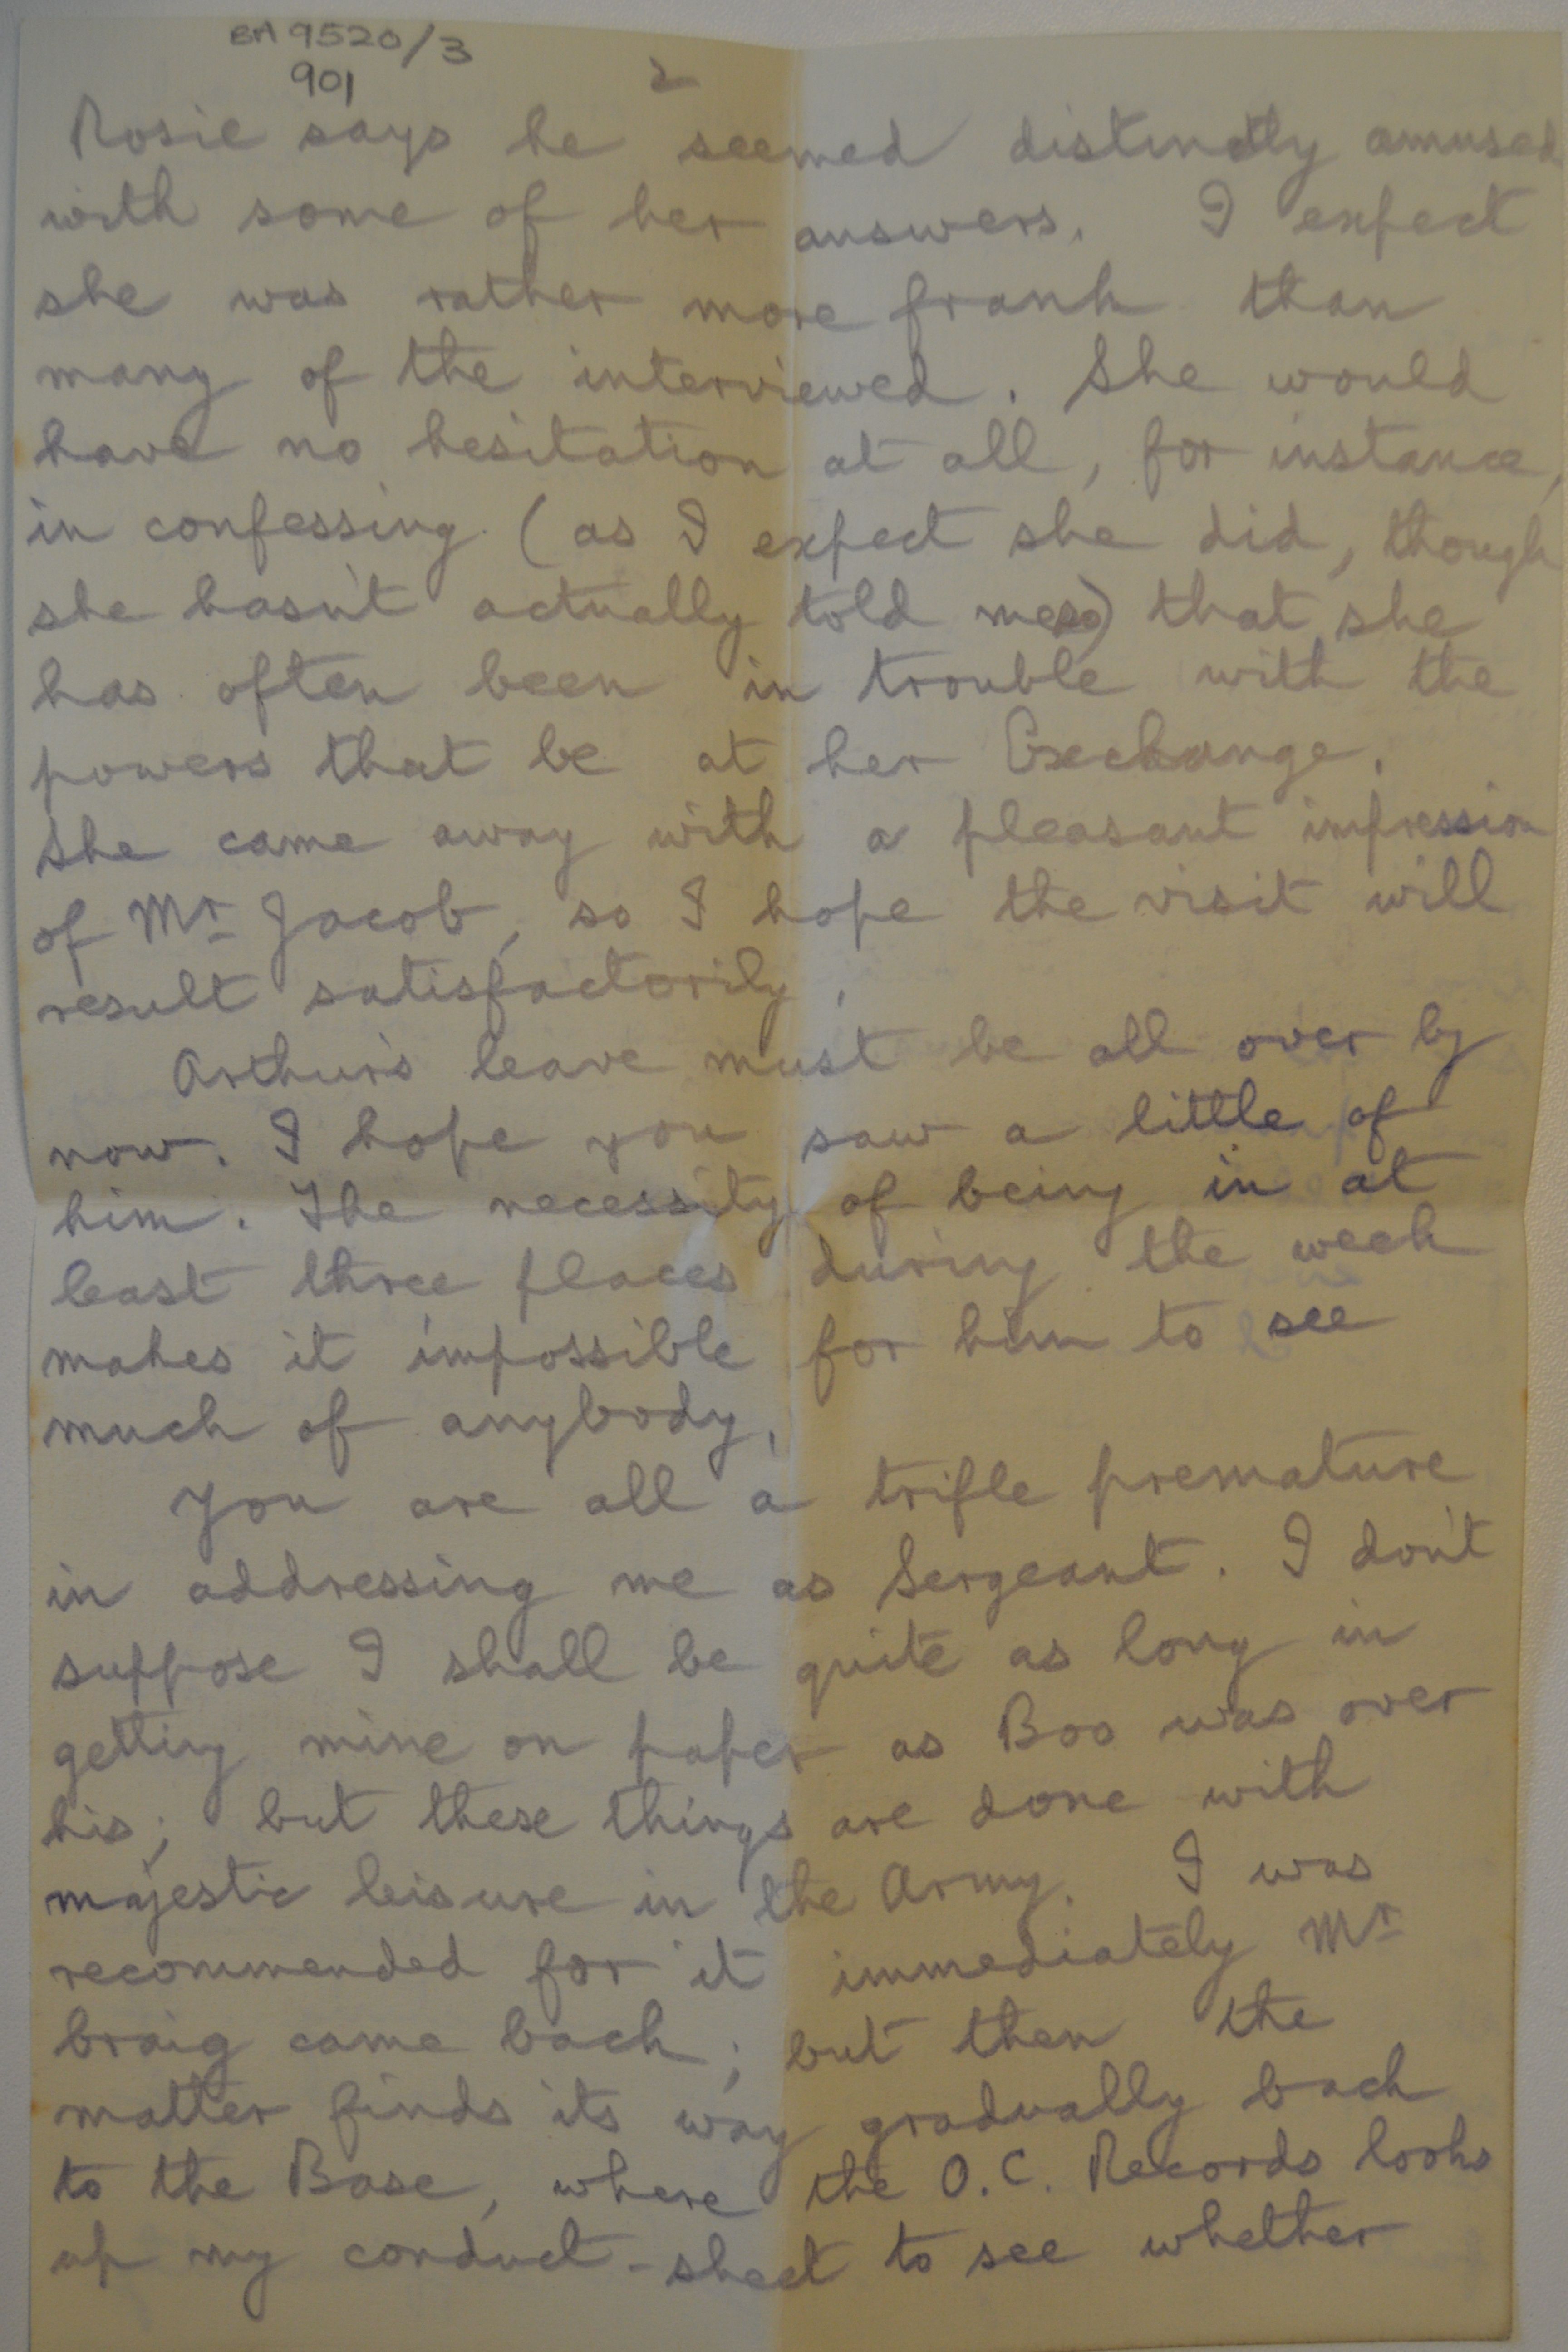 BA 9520/3
901
2
Rosie says he seemed distinctly amused
with some of her answers. I expect
she was rather more frank than
many of the interviewed. She would
have no hesitation at all, for instance,
in confessing (as I expect she did, though
she hasn't actually told me so) that she
has often been in trouble with the
powers that be at her Exchange.
She came away with a pleasant impression
of Mr Jacob, so I hope the visit will
result satisfactorily.
Arthur's leave must be all over by
now. I hope you saw a little of
him. The necessity of being in at
least three places during the week
makes it impossible for him to see
much of anybody.
You are all a trifle premature
in addressing me as Sergeant. I don't
suppose I shall be quite as long in
getting mine on paper as Boo was over
his; but these things are done with
majestic leisure in the Army. I was
recommended for it immediately Mr
Craig came back; but then the
matter finds its way gradually back
to the Base, where the O.C. Records looks
up my conduct-sheet to see whether